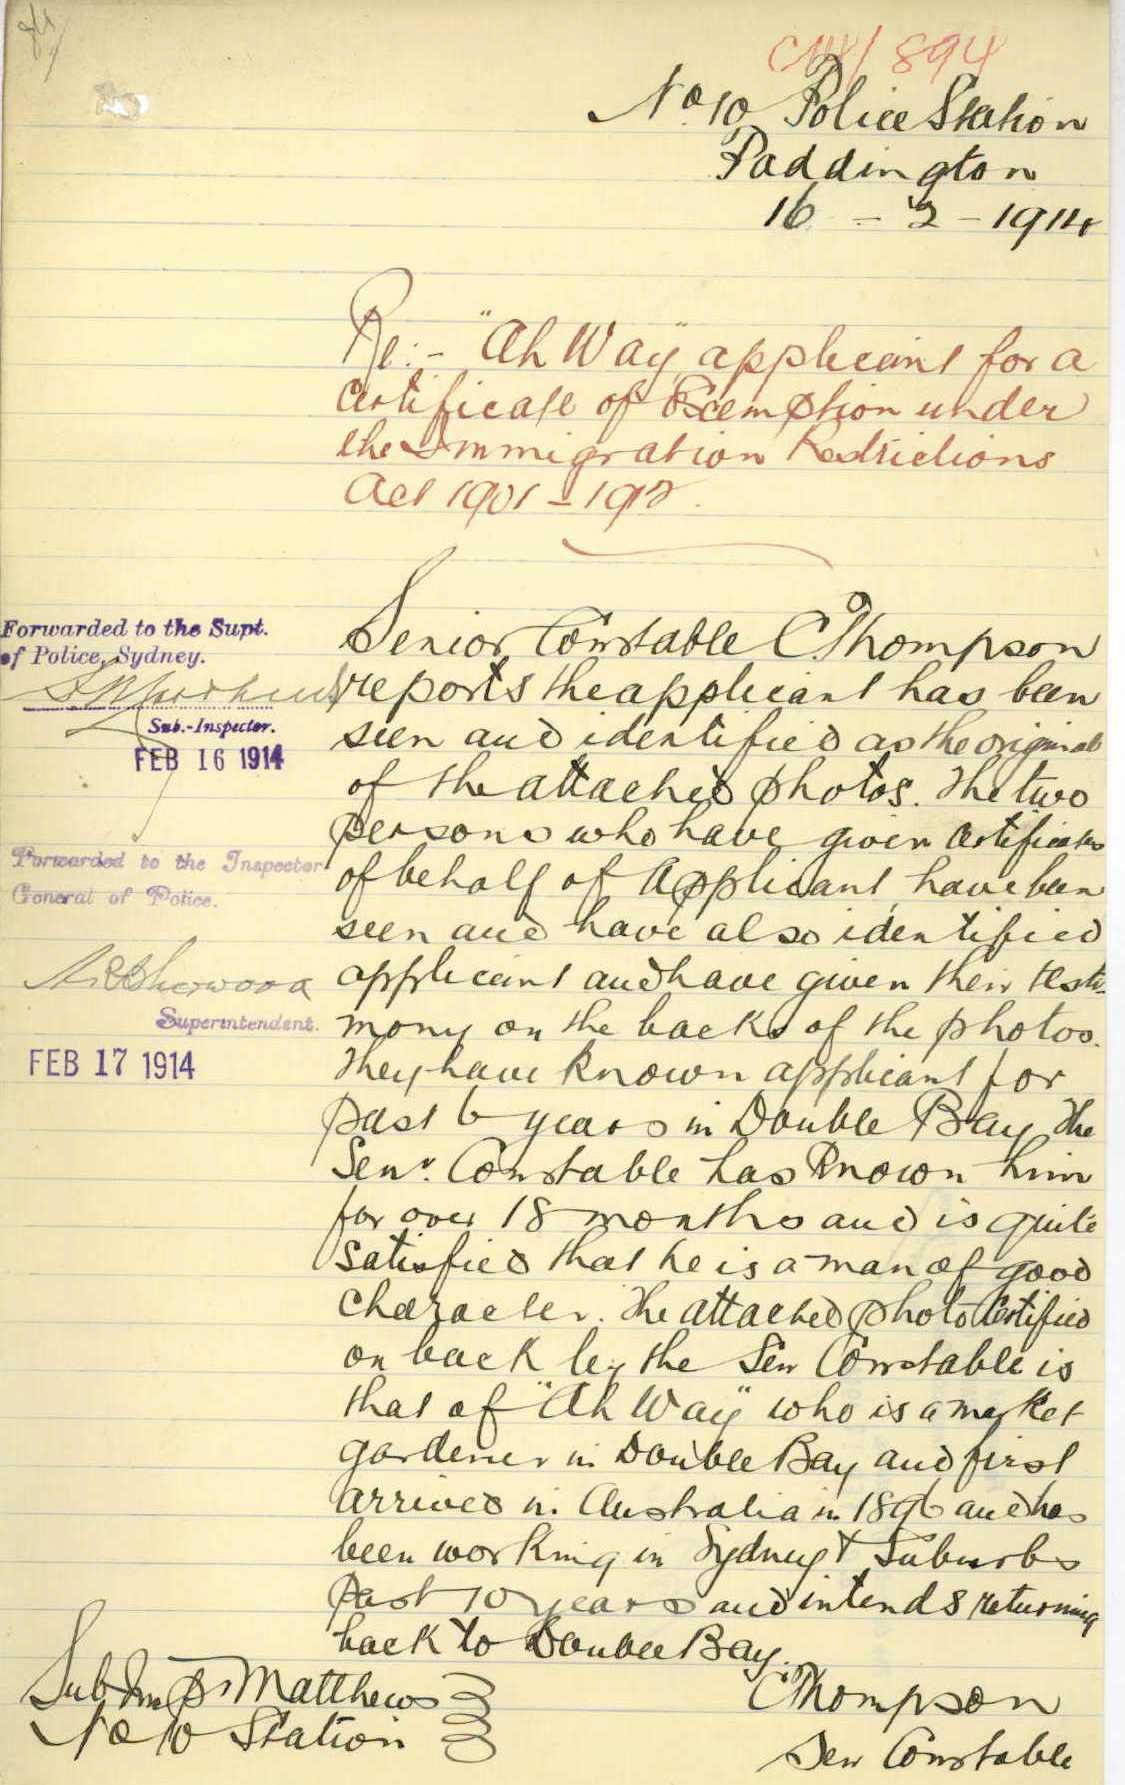 C14/894
No 10 Police Station
Paddington
16 - 2 - 1914
Re:- "Ah Way" applicant for a
Certificate of Exemption under
the Immigration Restrictions
Act 1901-1912.
Senior Constable C. Thompson
reports the applicant has been
seen and identified as the original
of the attached photos. The two
persons who have given Certificates
of behalf of Applicant, have been
seen and have also identified
applicant and have given their testi-
mony on the backs of the photos.
They have known applicant for
past 6 years in Double Bay. The
Senr. Constable has known him
for over 18 months and is quite
satisfied that he is a man of good
character. The attached photo Certified
on back by the Sen Constable is
that of "Ah Way" who is a market
gardener in Double Bay and first
arrived in Australia in 1896 and has
been working in Sydney & Suburbs
past 10 years and intends returning
back to Double Bay.
C Thompson
Sen Constable
Forwarded to the Supt.
of Police, Sydney.
Sub.-Inspector.
FEB 16 1914
Forwarded to the Inspector
General of Police.
Sherwood
Superintendent.
FEB 17 1914
Sub Insp Matthews
No 10 Station